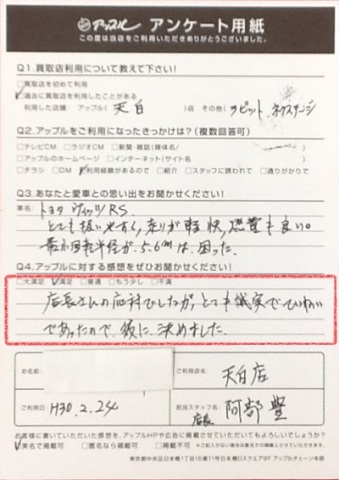 アップル アンケート用紙
この度は当店をご利用いただきありがとうございました。
Q1.買取店利用について教えて下さい!
□買取店を初めて利用
☑過去に買取店を利用したことがある
利用した店舗 アップル( 天白 )店 その他( ラビット、ネクステージ
Q2.アップルをご利用になったきっかけは?(複数回答可)
□テレビCM □ラジオCM □新聞・雑誌(媒体名: )
□アップルのホームページ □インターネット(サイト名: )
□チラシ □DM ☑利用経験があるので □紹介 □スタッフに誘われて □通りがかりで
Q3.あなたと愛車との思い出をお聞かせください!
車名: トヨタ ヴィッツRS
とても扱いやすく、走りが軽快、燃費も良い。
最小回転半径が5.6mは、困った。
Q4.アップルに対する感想をぜひお聞かせください!
□大満足 ☑満足 □普通 □もう少し □不満
店長さんの応対でしたが、とても誠実でていねい
であったので、彼に、決めました。
お名前
ご利用店名 天白店
ご利用日 H30.2.24
担当スタッフ名 店長 阿部 豊
お客様に書いていただいた感想が、アップルHPや広告に掲載させていただいてもよろしいでしょうか?
☑実名で掲載可 □匿名なら掲載可 □掲載不可
東京都中央区日本橋1丁目16番11号日本橋Dスクエア9F アップルチェーン本部